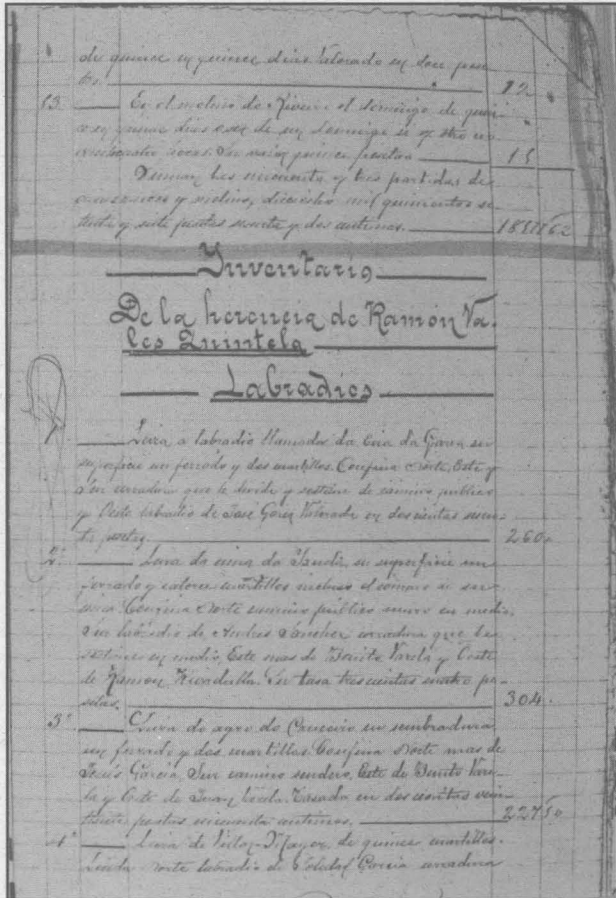 de quince en quince dias. Valorado en doce pese-
tas. 12
53. En el molino de Riveira el domingo de quin-
ce en quince dias o sea de un domingo si y otro no
veinticuatro horas. Su valor quince pesetas 15
Suman las cincuenta y tres partidas de
y molino, dieciocho mil quinientas se-
tenta y siete pesetas sesenta y dos centimos. 18577'62
Inventario
De la herencia de Ramón Va-
les Quintela
Labradíos
1ª Leira a labradio llamada da Eira da Garea su
superficie un ferrado y dos cuartillos. Confina Norte, Este y
Sur cerradura que le divide y sostiene de camino publico
y Oeste labradio de Jose Valorada en doscientas sesen-
ta pesetas 260
2ª Leira da cima da su superficie un
ferrado y catorce cuartillos incluso el comaro se sem-
Confina Norte camino publico muro en medio,
Sur labradio de Andres Sanchez cerradura que le
sostiene en medio, Este mas de Benito Varela y Oeste
de Ramon Rivadulla. Su tasa trescientas cuatro pe-
setas. 304.
3ª Leira do agro do Cruceiro en sembradura
un ferrado y dos cuartillos. Confina Norte mas de
Jesús Garcia Sur camino sendero, Este de Benito Vare-
la y Oeste de Juan Tasada en doscientas vein-
tisiete pesetas cincuenta centimos. 227'50
4ª Leira de de quince cuartillos.
Linda Norte labradio de Garcia cerradura